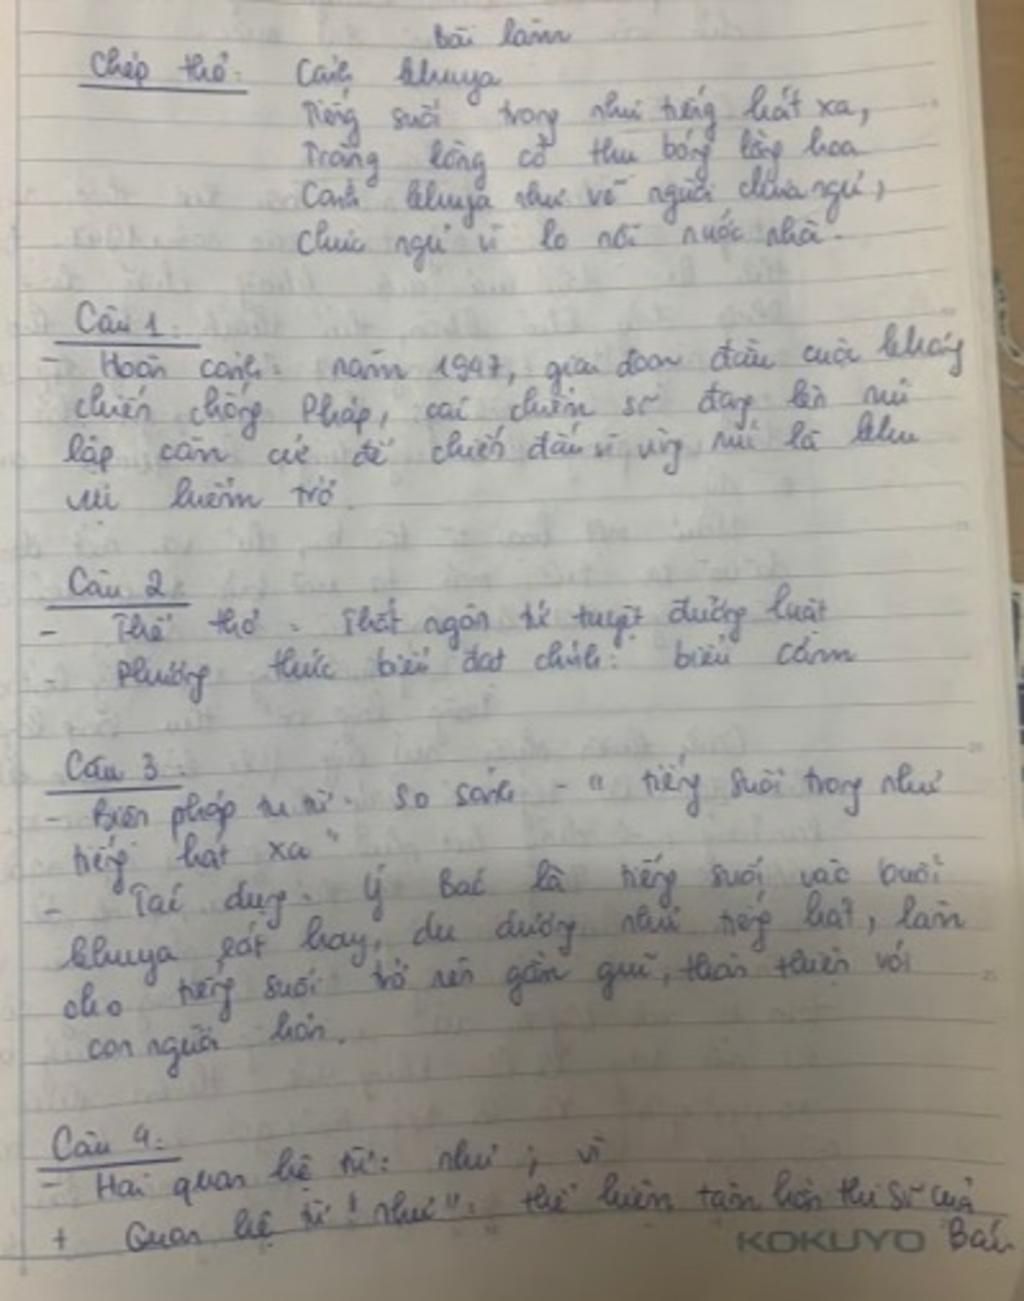 Bài làm
Chép thơ: Cảnh khuya
Tiếng suối trong như tiếng hát xa,
Trăng lồng cổ thụ bóng lồng hoa
Cảnh khuya như vẽ người chưa ngủ,
Chưa ngủ vì lo nỗi nước nhà.
Câu 1:
- Hoàn cảnh: năm 1947, giai đoạn đầu cuộc kháng
chiến chống Pháp, các chiến sĩ đang lên núi
lập căn cứ để chiến đấu vì vùng núi là khu
vực hiểm trở.
Câu 2
- Thể thơ: Thất ngôn tứ tuyệt đường luật
- Phương thức biểu đạt chính: biểu cảm
Câu 3:
- Biện pháp tu từ: So sánh - "tiếng suối trong như
tiếng hát xa"
- Tác dụng: Ý Bác là tiếng suối vào buổi
khuya rất hay, du dương như tiếng hát, làm
cho tiếng suối trở nên gần gũi, thân thiện với
con người hơn.
Câu 4:
- Hai quan hệ từ: như; vì
+ Quan hệ từ "như": thể hiện tâm hồn thi sĩ của
Bác
KOKUYO